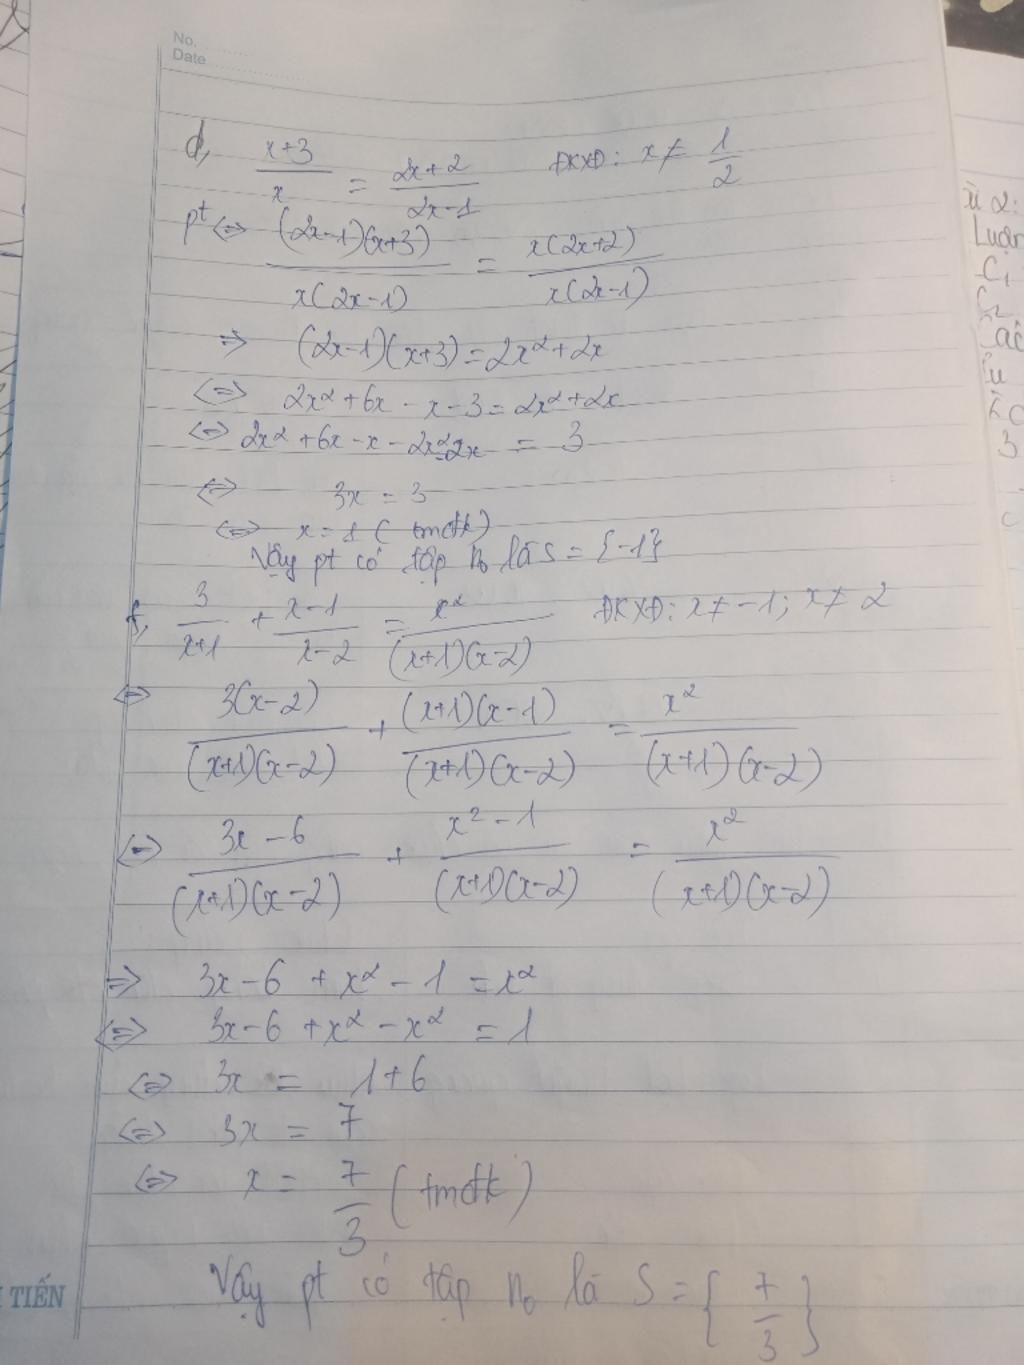 No.
Date
d, x+3/x = 2x+2/2x-1 ĐKXĐ: x ≠ 1/2
pt <=> (2x-1)(x+3)/x(2x-1) = x(2x+2)/x(2x-1)
=> (2x-1)(x+3) = 2x²+2x
<=> 2x²+6x - x - 3 = 2x²+2x
<=> 2x²+6x - x - 2x²-2x = 3
<=> 3x = 3
<=> x = 1 ( tmđk)
Vậy pt có tập n₀ là S = {-1}
f, 3/x+1 + x-1/x-2 = x²/(x+1)(x-2) ĐKXĐ: x ≠ -1; x ≠ 2
<=> 3(x-2)/(x+1)(x-2) + (x+1)(x-1)/(x+1)(x-2) = x²/(x+1)(x-2)
<=> 3x - 6/(x+1)(x-2) + x² - 1/(x+1)(x-2) = x²/(x+1)(x-2)
=> 3x-6 + x² - 1 = x²
<=> 3x-6 + x² - x² = 1
<=> 3x = 1+6
<=> 3x = 7
<=> x = 7/3 ( tmđk)
Vậy pt có tập n₀ là S = { 7/3 }
TIẾN
2:
Luận
C1
3